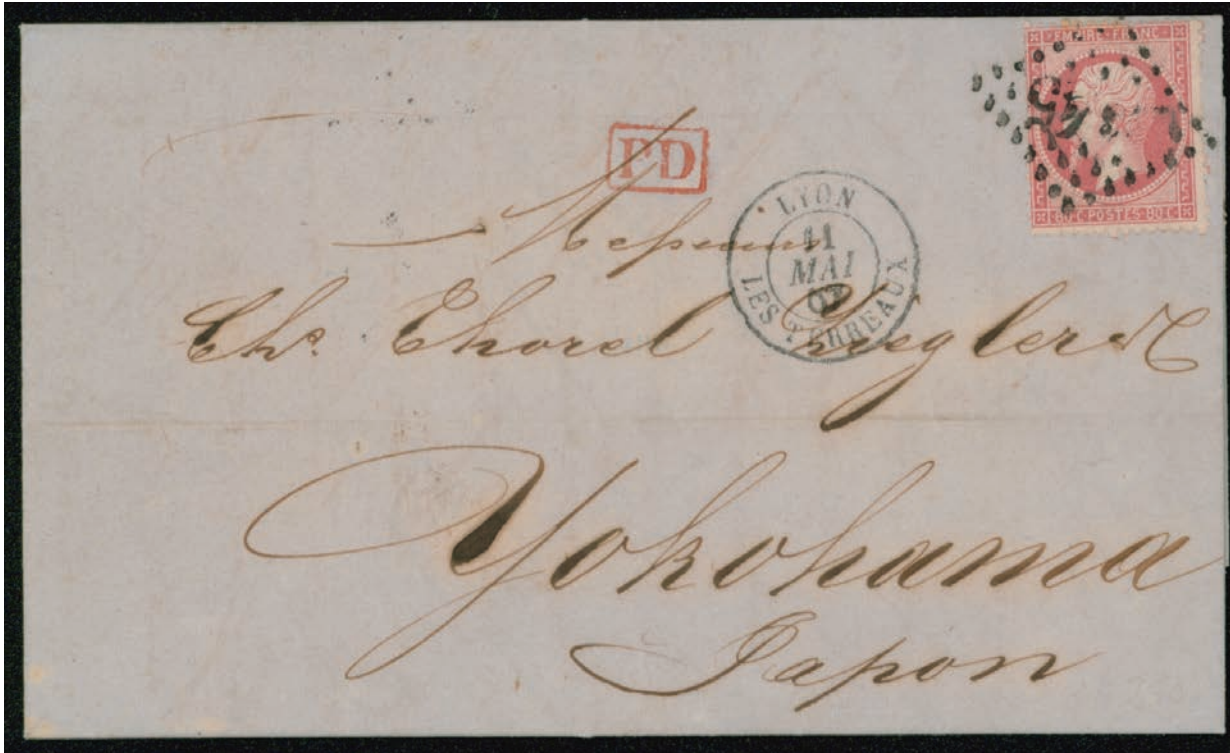 EMPIRE · FRANC
45
80 C · POSTES · 80 C
PD
LYON
11
MAI
67
LES TERREAUX
Messieurs
Chs. Thorel Ziegler & C
Yokohama
Japon